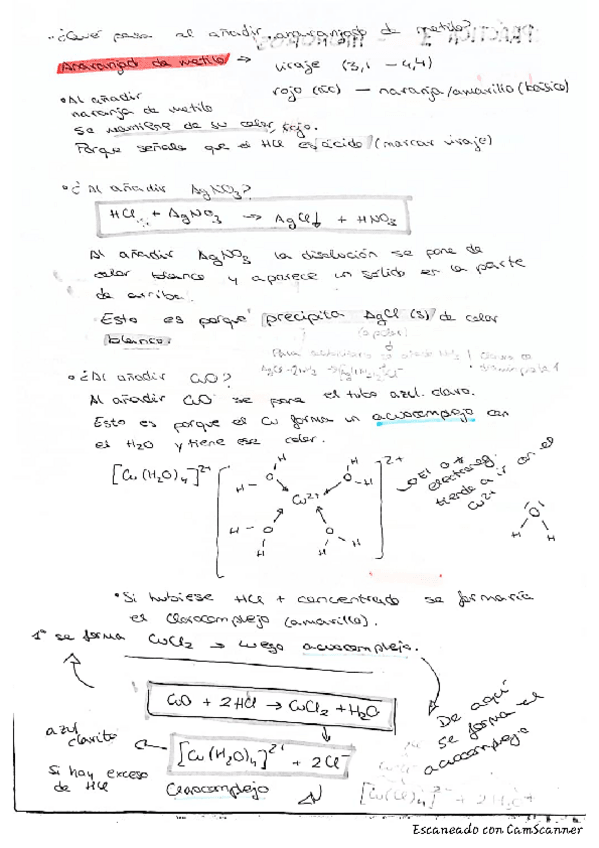 ¿Qué pasa al añadir anaranjado de metilo?
Anaranjado de metilo → viraje (3,1 – 4,4)
rojo (ác) — naranja/amarillo (básico)
• Al añadir
naranja de metilo
se mantiene de su color, rojo.
Porque señala que el HCl es ácido (marcar viraje)
• ¿Al añadir AgNO3?
HCl + AgNO3 → AgCl↓ + HNO3
Al añadir AgNO3 la disolución se pone de
color blanco y aparece un sólido en la parte
de arriba.
Esto es porque precipita AgCl (s) de color
blanco.
• ¿Al añadir CuO?
Al añadir CuO se pone el tubo azul claro.
Esto es porque el Cu forma un acuocomplejo con
el H2O y tiene ese color.
[Cu(H2O)4]2+
2+
H H
H – O O – H
Cu2+
H – O O – H
H H
El O + electroneg. tiende a ir en el Cu2+
O
H H
• Si hubiese HCl + concentrado se formaría
el Clorocomplejo (amarillo).
1º se forma CuCl2 → luego acuocomplejo.
CuO + 2HCl → CuCl2 + H2O
De aquí
se forma el
acuocomplejo
azul
clarito
[Cu(H2O)4]2+ + 2Cl-
Si hay exceso
de HCl
Clorocomplejo
Escaneado con CamScanner